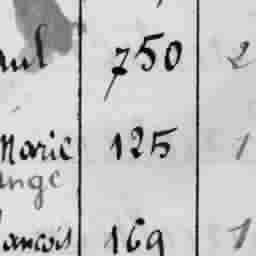 aul 750 2
Marie 125 1
ange
ancois 169 1